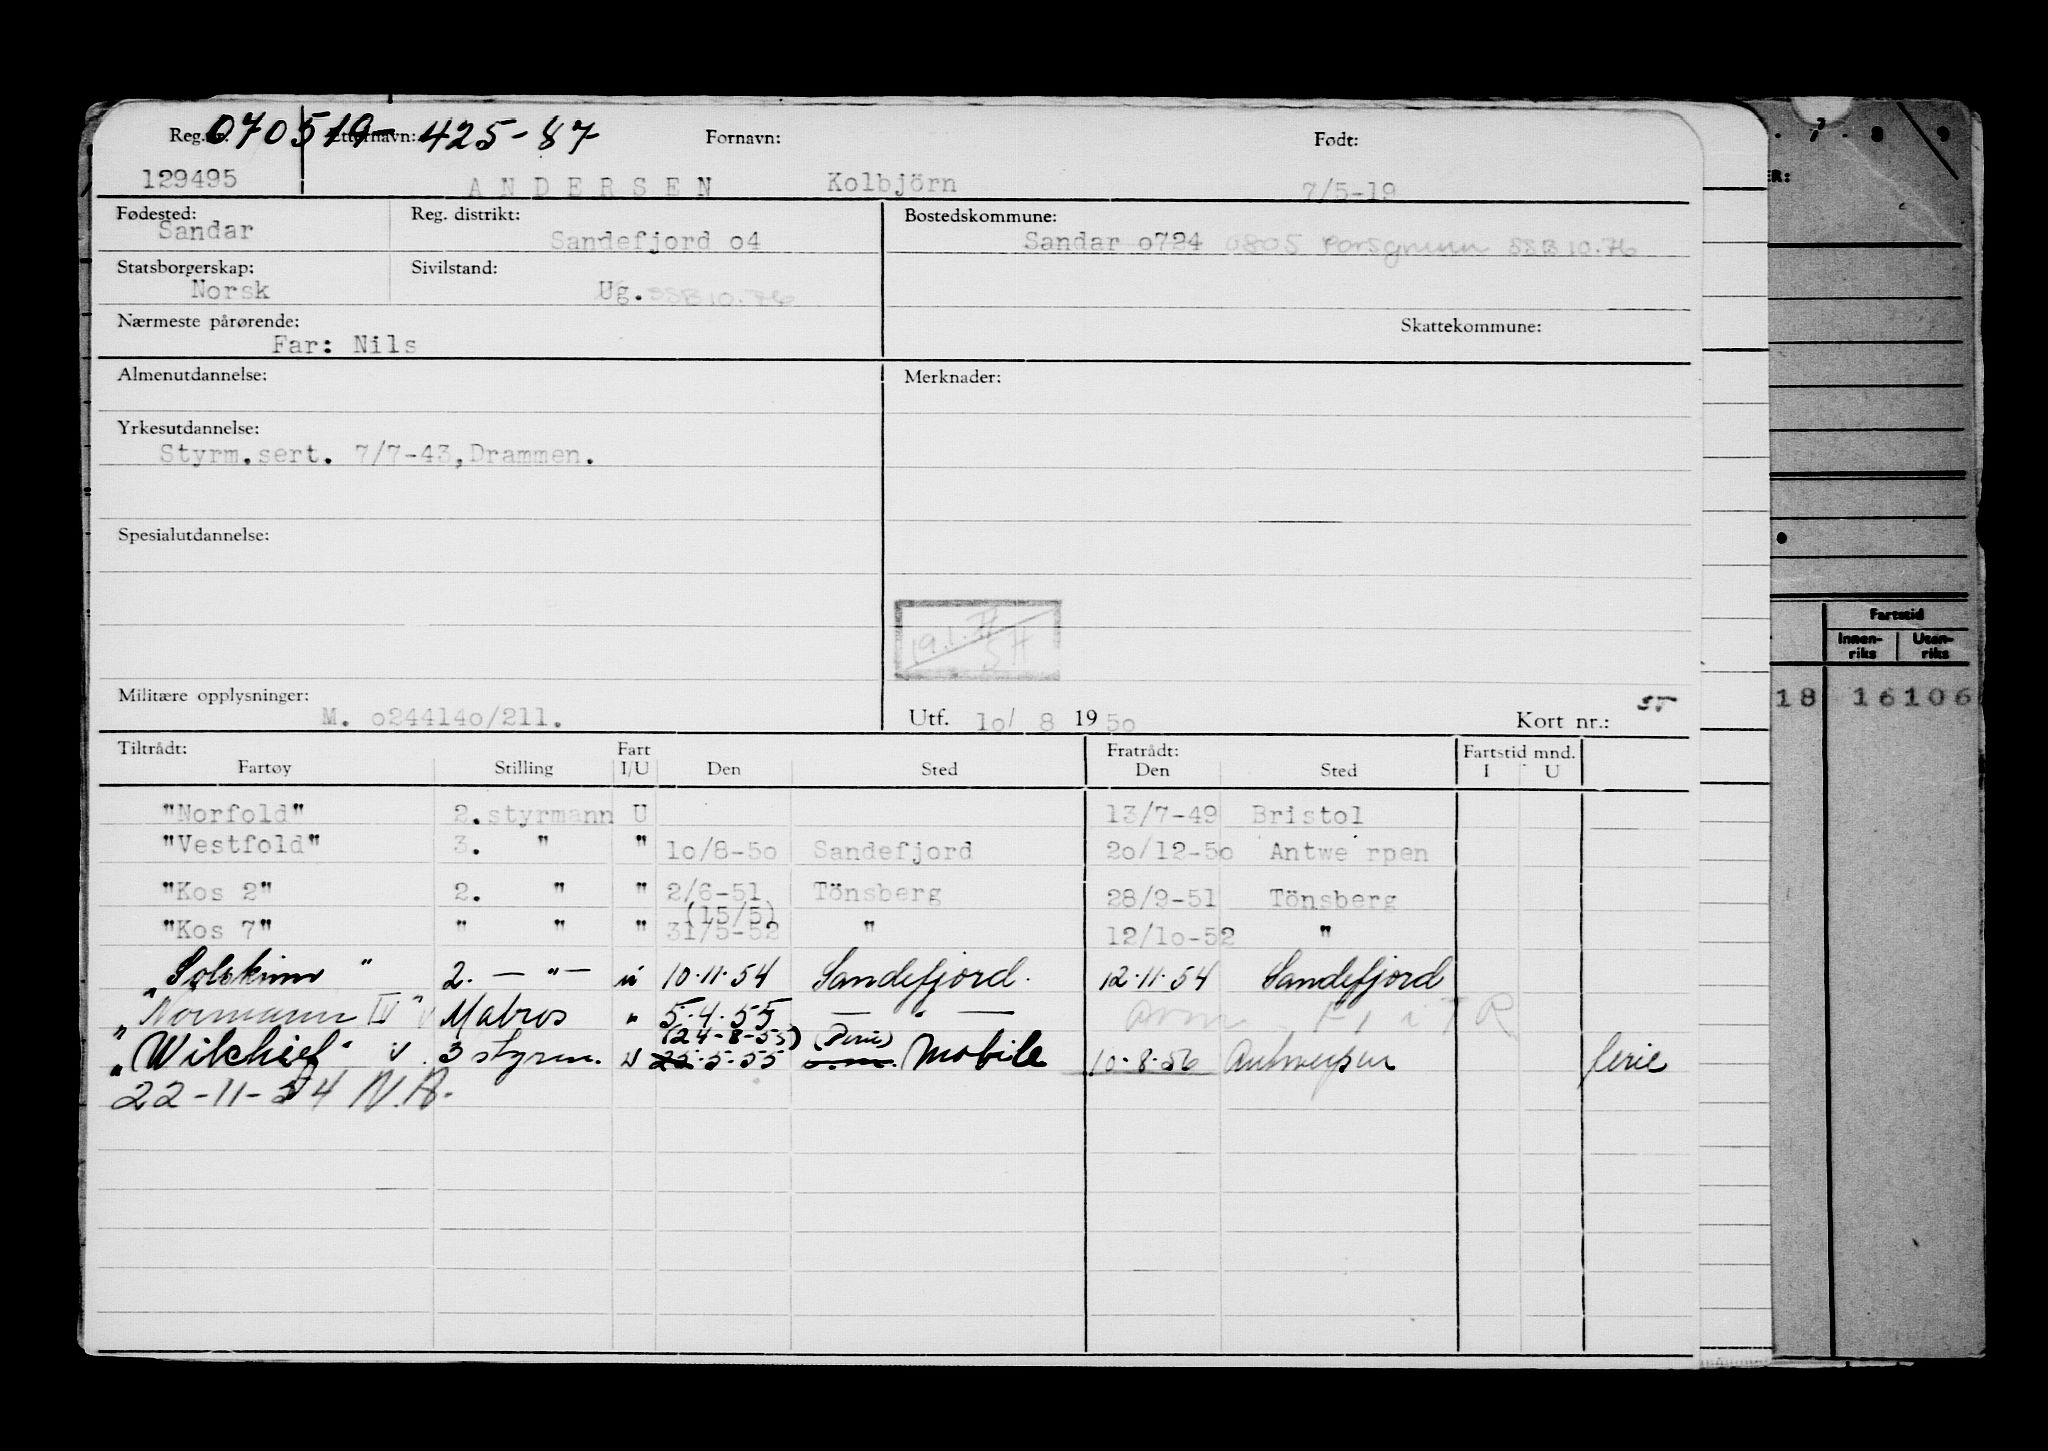 070519- 425-87
Reg.nr. Etternavn: Fornavn: Født:
129495 ANDERSEN Kolbjörn 7/5-19
Fødested: Reg. distrikt: Bostedskommune:
Sandar Sandefjord o4 Sandar o724 0805 Porsgrunn SSB 10.76
Statsborgerskap: Sivilstand:
Norsk Ug. SSB 10.76
Nærmeste pårørende: Skattekommune:
Far: Nils
Almenutdannelse: Merknader:
Yrkesutdannelse:
Styrm.sert. 7/7-43,Drammen.
Spesialutdannelse:
Militære opplysninger:
M. o24414o/211. Utf. 1o/ 8 19 5o Kort nr.:
Tiltrådt: Fart Fratrådt: Fartstid mnd.
Fartøy Stilling I/U Den Sted Den Sted I U
"Norfold" 2.styrmann U 13/7-49 Bristol
"Vestfold" 3. " " 1o/8-5o Sandefjord 2o/12-5o Antwe rpen
"Kos 2" 2. " " 2/6-51 Tönsberg 28/9-51 Tönsberg
(15/5)
"Kos 7" " " " 31/5-52 " 12/1o-52 "
"Solskinn" 2. — " — u 10.11.54 Sandefjord. 12.11.54 Sandefjord
"Normann IV" Matros " 5.4.55 — " —
(24-8-55) (Ferie)
"Wilchief" 3 styrm. 22.5.55 Mobile 10.8.56 Antwerpen ferie
22-11-54 N.A.
7 8 9
ER:
Fartstid
Innen-riks Uten-riks
18 16106